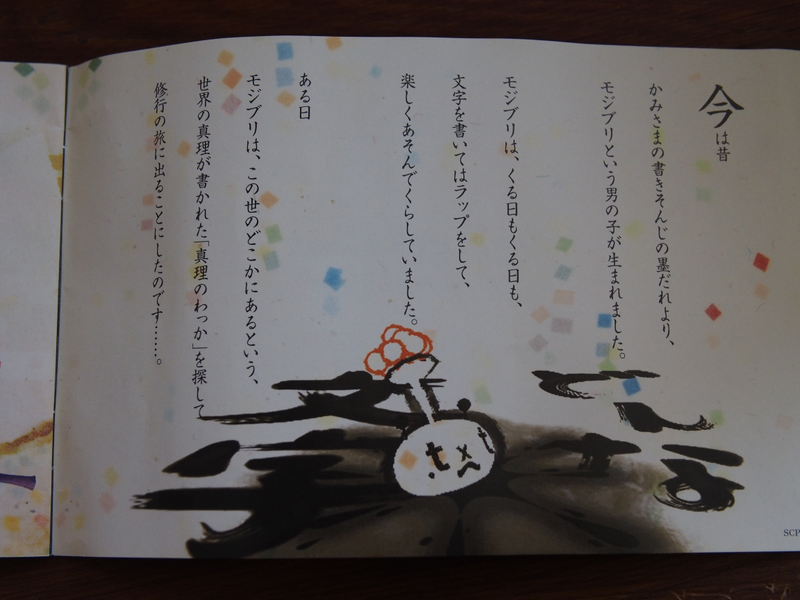 今は昔
かみさまの書きそんじの墨だれより、
モジブリという男の子が生まれました。
モジブリは、くる日もくる日も、
文字を書いてはラップをして、
楽しくあそんでくらしていました。
ある日
モジブリは、この世のどこかにあるという、
世界の真理が書かれた「真理のわっか」を探して
修行の旅に出ることにしたのです……。
SCP